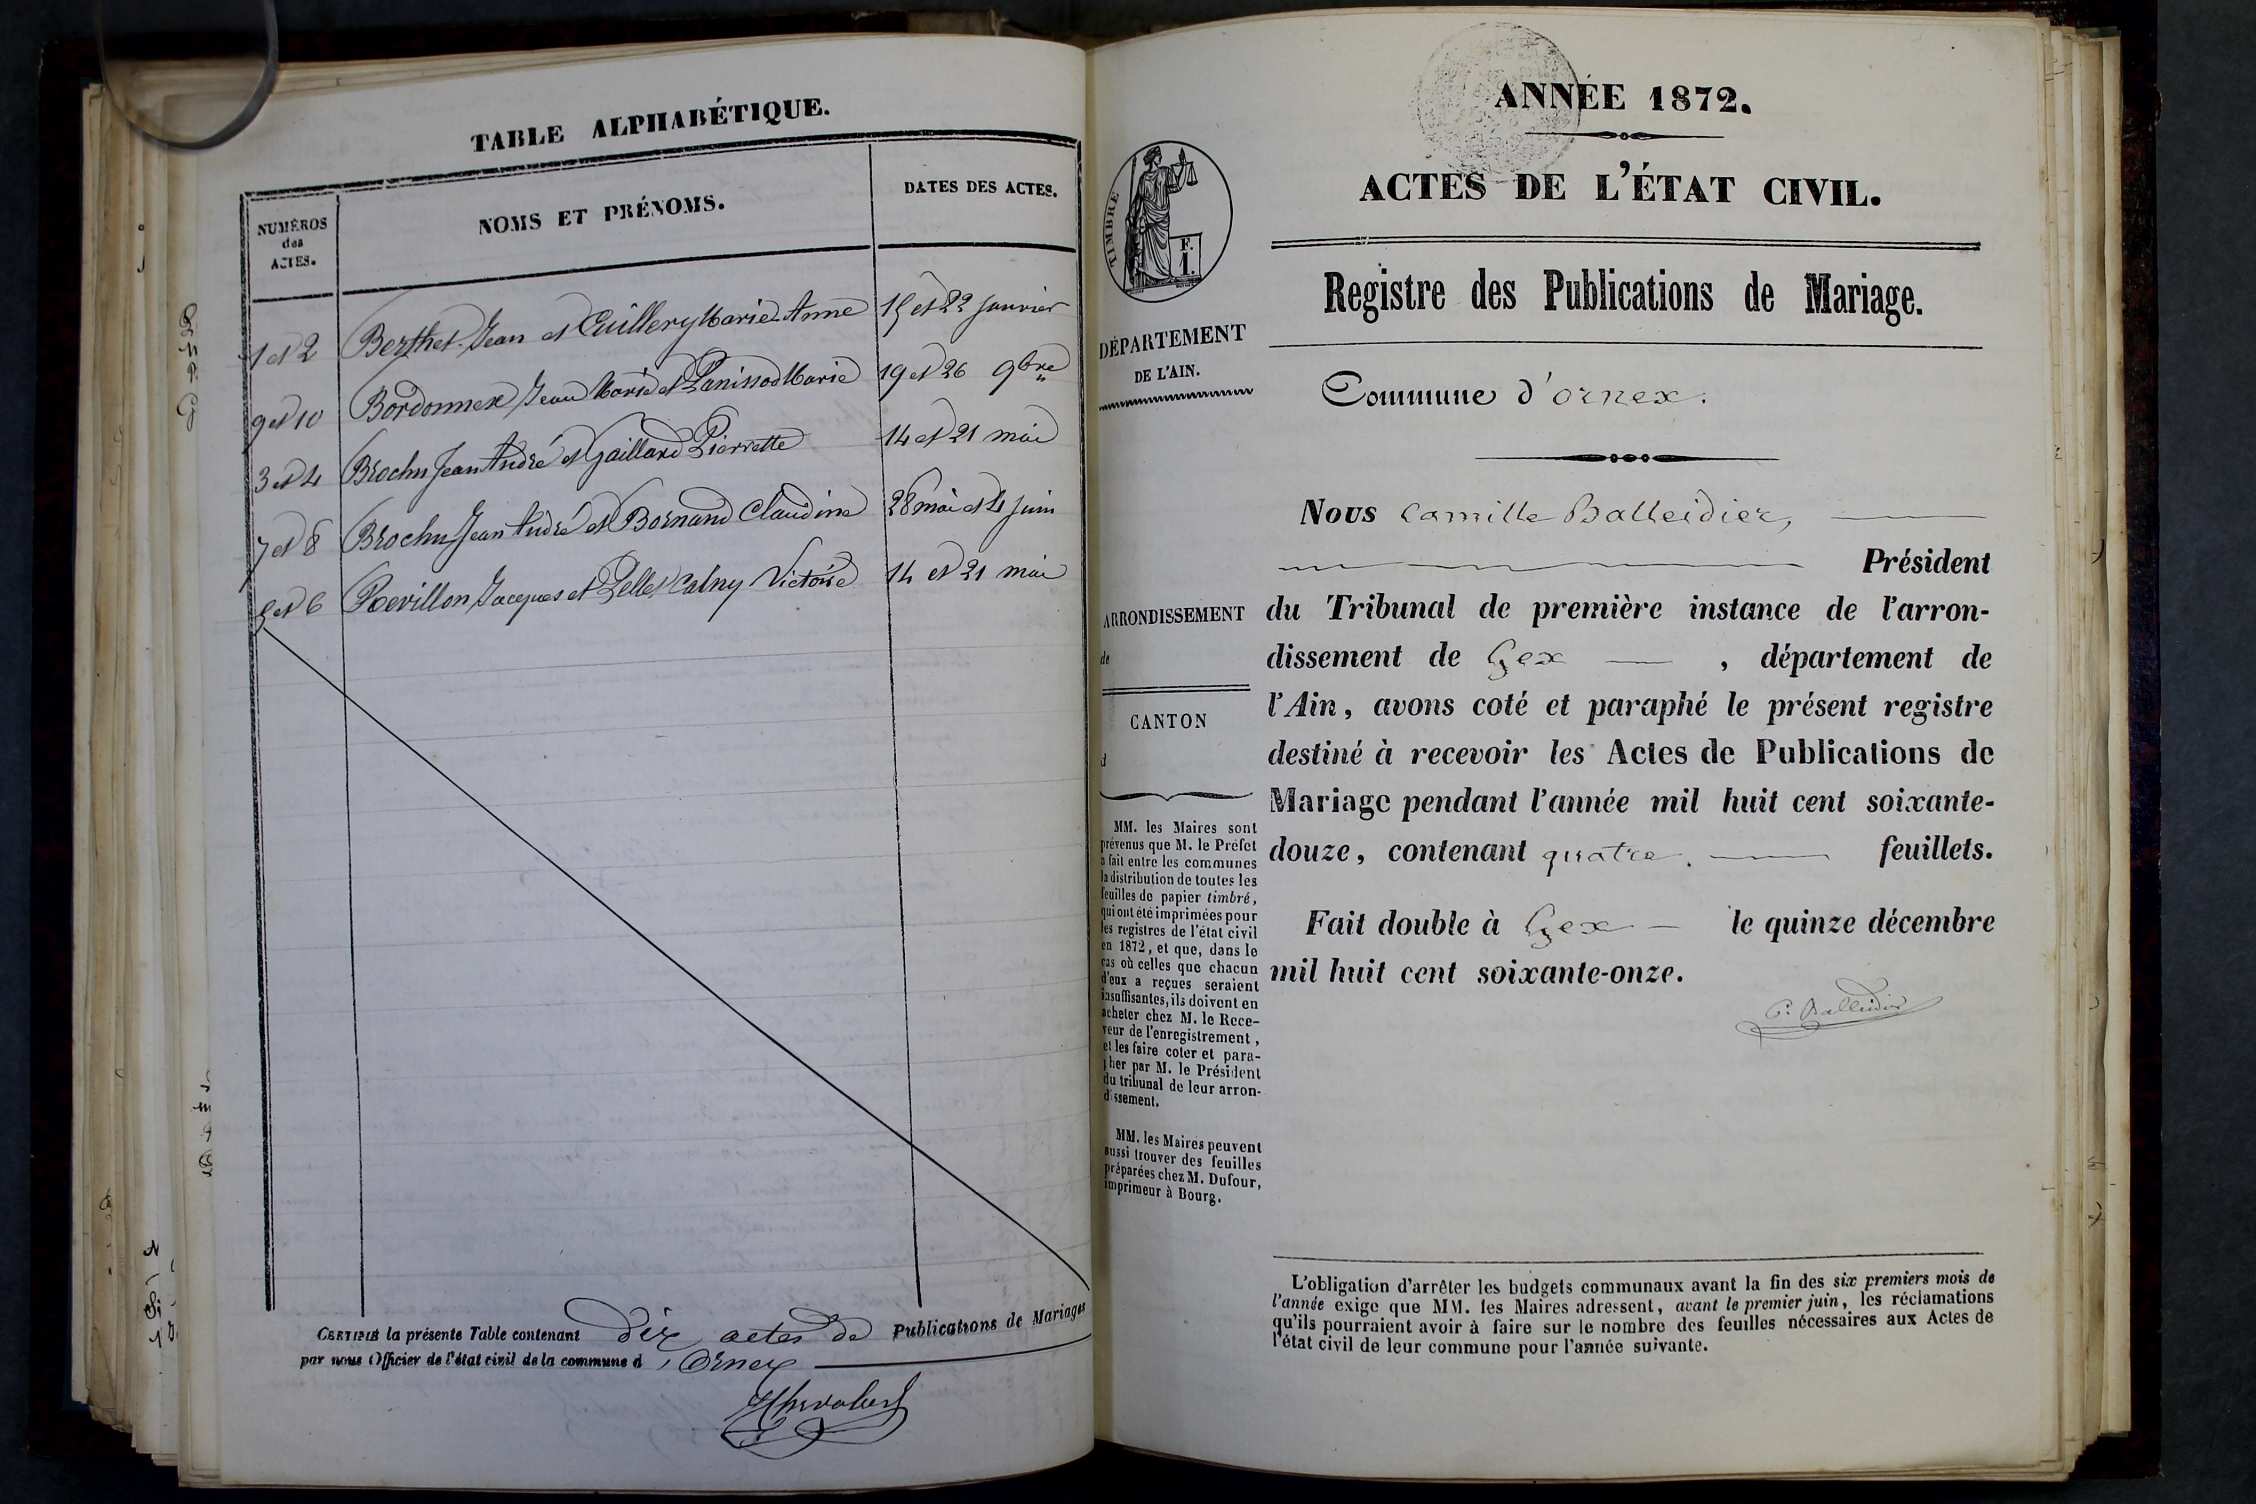 TABLE ALPHABÉTIQUE.
NUMÉROS
des
ACTES.
NOMS ET PRÉNOMS.
DATES DES ACTES.
1 et 2 Berthet Jean et Cuillery Marie Anne 15 et 22 janvier
9 et 10 Bordonnex Jean Marie et Panissod Marie 19 et 26 9bre
3 et 4 Brochu Jean André et Gaillard Pierrette 14 et 21 mai
7 et 8 Brochu Jean André et Bornand Claudine 28 mai et 4 juin
5 et 6 Revillon Jacques et Pellet Calny Victoire 14 et 21 mai
CERTIFIÉ la présente Table contenant dix actes de Publications de Mariages
par nous Officier de l'état civil de la commune d'Ornex
ANNÉE 1872.
ACTES DE L'ÉTAT CIVIL.
Registre des Publications de Mariage.
Commune d'ornex.
TIMBRE
F.
I.
DÉPARTEMENT
DE L'AIN.
ARRONDISSEMENT
de
CANTON
d
MM. les Maires sont
prévenus que M. le Préfet
a fait entre les communes
la distribution de toutes les
feuilles de papier timbré,
qui ont été imprimées pour
les registres de l'état civil
en 1872, et que, dans le
cas où celles que chacun
d'eux a reçues seraient
insuffisantes, ils doivent en
acheter chez M. le Rece-
veur de l'enregistrement,
et les faire coter et para-
pher par M. le Président
du tribunal de leur arron-
dissement.
MM. les Maires peuvent
aussi trouver des feuilles
préparées chez M. Dufour,
imprimeur à Bourg.
Nous Camille Balleidier,
Président
du Tribunal de première instance de l'arron-
dissement de Gex, département de
l'Ain, avons coté et paraphé le présent registre
destiné à recevoir les Actes de Publications de
Mariage pendant l'année mil huit cent soixante-
douze, contenant quatre. feuillets.
Fait double à Gex le quinze décembre
mil huit cent soixante-onze.
C. Balleidier
L'obligation d'arrêter les budgets communaux avant la fin des six premiers mois de
l'année exige que MM. les Maires adressent, avant le premier juin, les réclamations
qu'ils pourraient avoir à faire sur le nombre des feuilles nécessaires aux Actes de
l'état civil de leur commune pour l'année suivante.